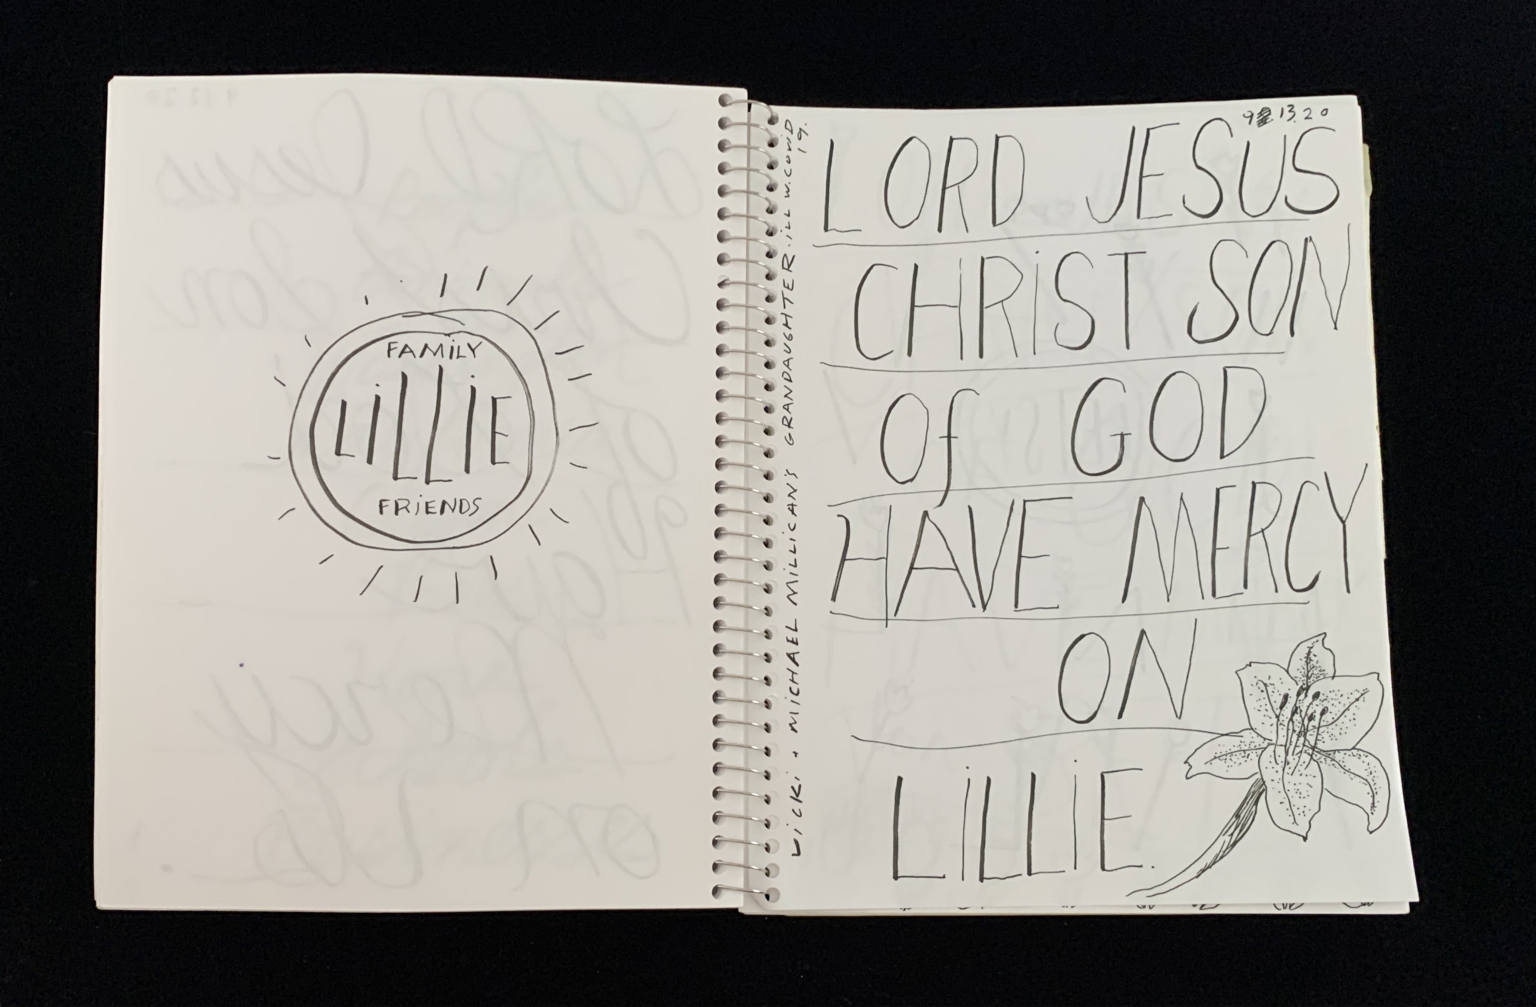 FAMILY
LILLIE
FRIENDS
VICKI + MICHAEL MILLICAN'S GRANDAUGHTER. ILL W. COVID
19.
13.20
LORD JESUS
CHRIST SON
Of GOD
HAVE MERCY
ON
LILLIE.